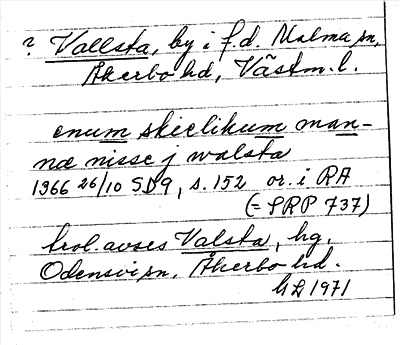 ? Vallsta, by i f.d. Malma sn,
Åkerbo hd, Västm. l.
enum skellikum man-
næ nisse j walsta
1366 26/10 SD9, s. 152 or. i RA
(= SRP 737)
trol. avses Valsta, hg,
Odensvi sn, Åkerbo hd.
GL 1971